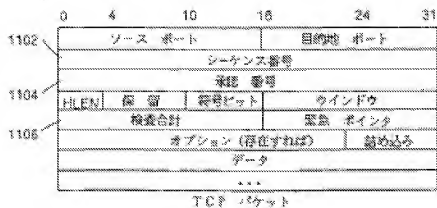 0 4 10 16 24 31
1102 ソース ポート 目的地 ポート
シーケンス番号
承認 番号
1104 HLEN 保 留 符号ビット ウインドウ
1106 検査合計 緊急 ポインタ
オプション (存在すれば) 詰め込み
データ
...
TCP パケット